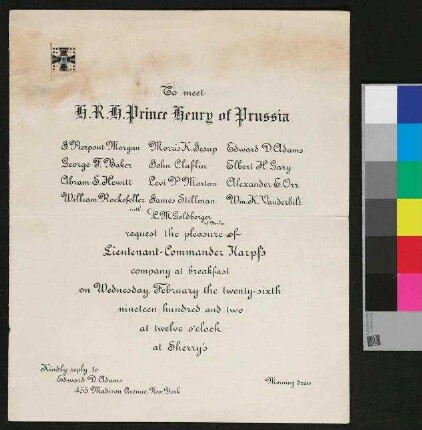 To meet
H.R.H. Prince Henry of Prussia
J Pierpont Morgan Morris K. Jesup Edward D. Adams
George F. Baker John Claflin Elbert H. Gary
Abram S. Hewitt Levi P. Morton Alexander E. Orr
William Rockefeller James Stillman Wm. K. Vanderbilt
with L. M. Goldberger
request the pleasure of
Lieutenant-Commander Karpf's
company at breakfast
on Wednesday, February the twenty-sixth
nineteen hundred and two
at twelve o'clock
at Sherry's
Kindly reply to
Edward D. Adams
455 Madison Avenue, New York
Morning dress